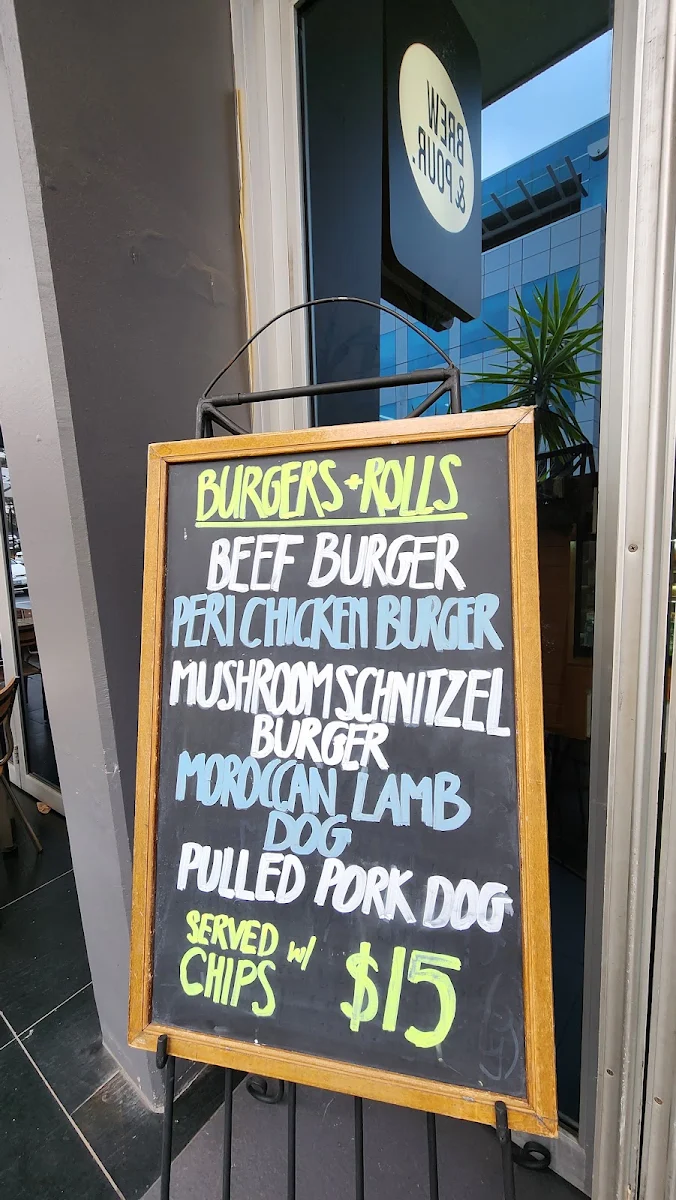 BREW
& POUR.
BURGERS + ROLLS
BEEF BURGER
PERI CHICKEN BURGER
MUSHROOM SCHNITZEL
BURGER
MOROCCAN LAMB
DOG
PULLED PORK DOG
SERVED w/
CHIPS $15